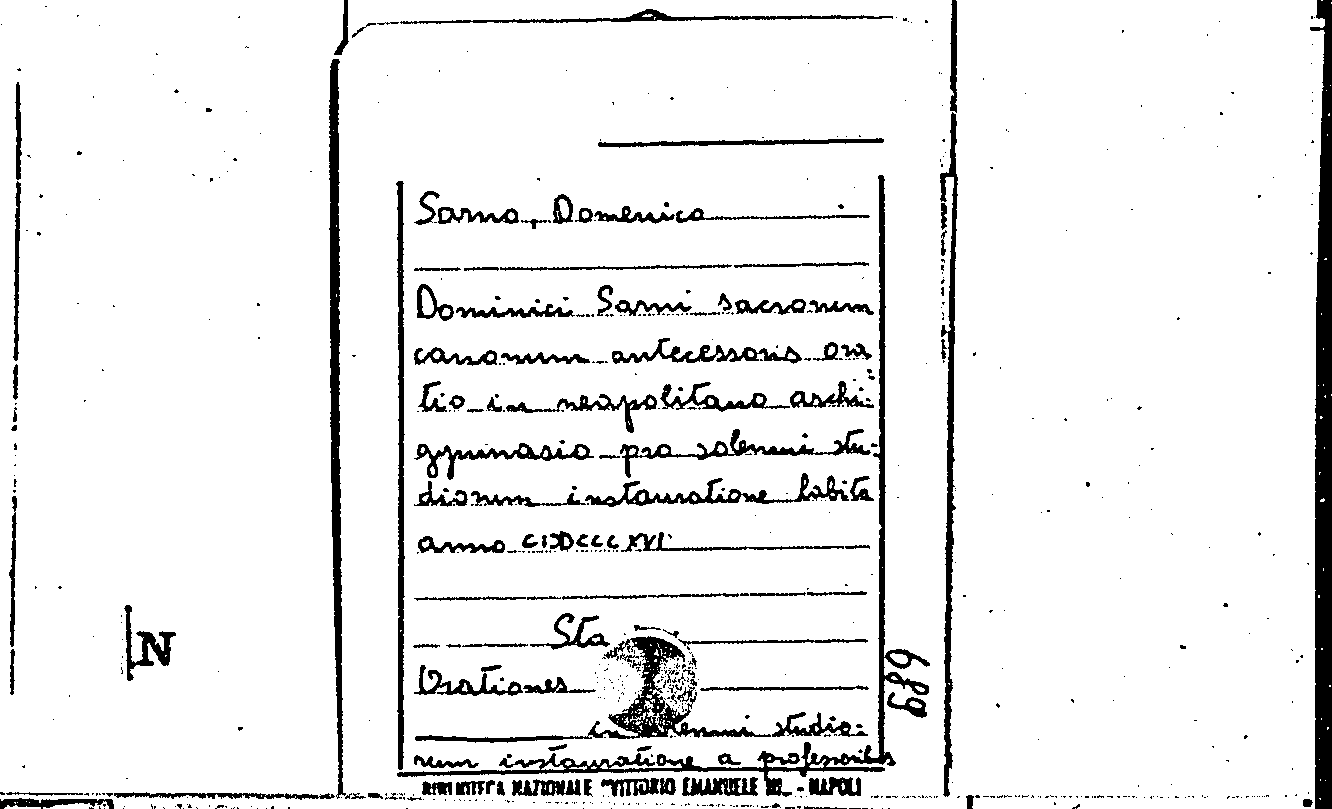 Sarno, Domenico
Dominici Sarni sacrorum
canonum antecessoris ora
tio in neapolitano archi=
gymnasio pro solemni stu=
diorum instauratione habita
anno CIƆDCCCXVI
Sta
Orationes
in solemni studio=
rum instauratione a professoribus
BIBLIOTECA NAZIONALE "VITTORIO EMANUELE III" - NAPOLI
689
N